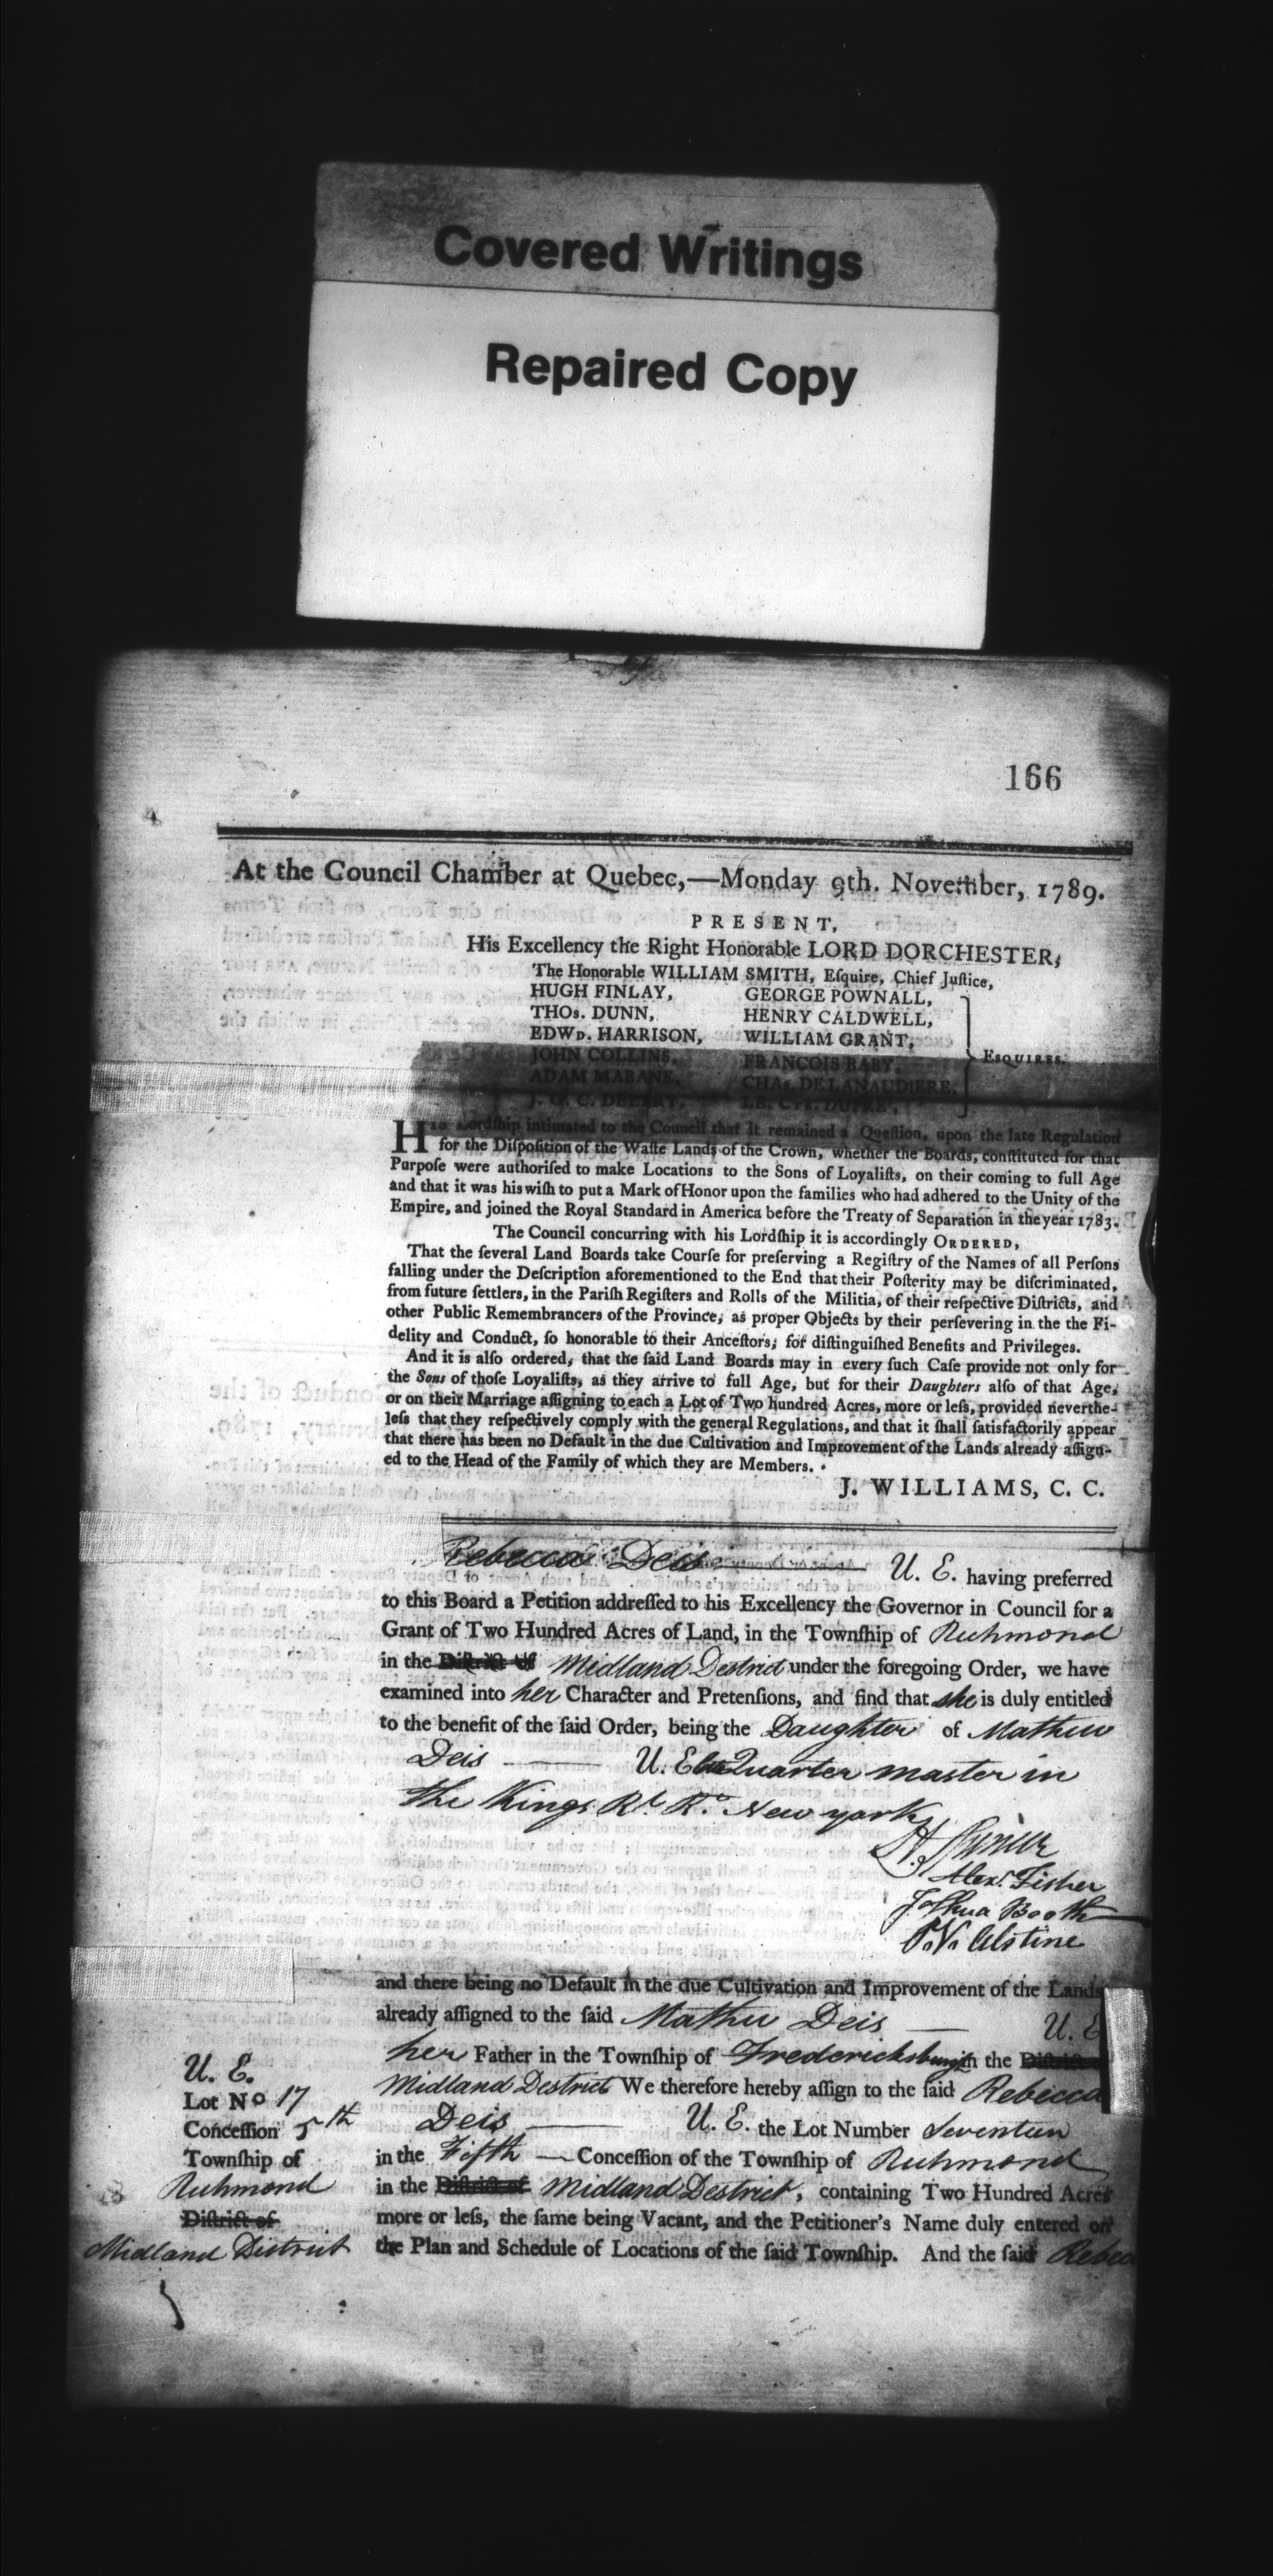 Covered Writings
Repaired Copy
166
At the Council Chamber at Quebec,—Monday 9th. November, 1789.
PRESENT,
His Excellency the Right Honorable LORD DORCHESTER;
The Honorable WILLIAM SMITH, Eſquire, Chief Juſtice,
HUGH FINLAY, GEORGE POWNALL,
THOs. DUNN, HENRY CALDWELL,
EDWD. HARRISON, WILLIAM GRANT,
ESQUIRES.
JOHN COLLINS, FRANCOIS BABY,
ADAM MABANE, CHAs. DE LANAUDIERE,
J. G. C. DELERY, LE CTE. DUPRE,
HIS Lordſhip intimated to the Council that it remained a Queſtion, upon the late Regulation
for the Diſpoſition of the Waſte Lands of the Crown, whether the Boards, conſtituted for that
Purpoſe were authoriſed to make Locations to the Sons of Loyaliſts, on their coming to full Age
and that it was his wiſh to put a Mark of Honor upon the families who had adhered to the Unity of the
Empire, and joined the Royal Standard in America before the Treaty of Separation in the year 1783.
The Council concurring with his Lordſhip it is accordingly ORDERED,
That the ſeveral Land Boards take Courſe for preſerving a Regiſtry of the Names of all Perſons
falling under the Deſcription aforementioned to the End that their Poſterity may be diſcriminated,
from future ſettlers, in the Pariſh Regiſters and Rolls of the Militia, of their reſpective Diſtricts, and
other Public Remembrancers of the Province, as proper Objects by their perſevering in the the Fi-
delity and Conduct, ſo honorable to their Anceſtors, for diſtinguiſhed Benefits and Privileges.
And it is alſo ordered, that the ſaid Land Boards may in every ſuch Caſe provide not only for
the Sons of thoſe Loyaliſts, as they arrive to full Age, but for their Daughters alſo of that Age,
or on their Marriage aſſigning to each a Lot of Two hundred Acres, more or leſs, provided neverthe-
leſs that they reſpectively comply with the general Regulations, and that it ſhall ſatisfactorily appear
that there has been no Default in the due Cultivation and Improvement of the Lands already aſſign-
ed to the Head of the Family of which they are Members.
J. WILLIAMS, C. C.
Rebecca Deis U. E. having preferred
to this Board a Petition addreſſed to his Excellency the Governor in Council for a
Grant of Two Hundred Acres of Land, in the Townſhip of Richmond
in the District of Midland District under the foregoing Order, we have
examined into her Character and Pretenſions, and find that she is duly entitled
to the benefit of the ſaid Order, being the Daughter of Mathew
Deis U. E. Quarter master in
the Kings Rl. Rt. New york
Alexr. Fisher
Joshua Booth
P. V. Alstine
and there being no Default in the due Cultivation and Improvement of the Lands
already aſſigned to the ſaid Mathew Deis U. E
her Father in the Townſhip of Fredericksburgh in the District
Midland District We therefore hereby aſſign to the ſaid Rebecca
Deis U. E. the Lot Number Seventeen
in the Fifth Conceſſion of the Townſhip of Richmond
in the District of Midland District, containing Two Hundred Acres
more or leſs, the ſame being Vacant, and the Petitioner's Name duly entered on
the Plan and Schedule of Locations of the ſaid Townſhip. And the ſaid Rebecca
U. E.
Lot No 17
Conceſſion 5th
Townſhip of
Richmond
Diſtrict of
Midland District